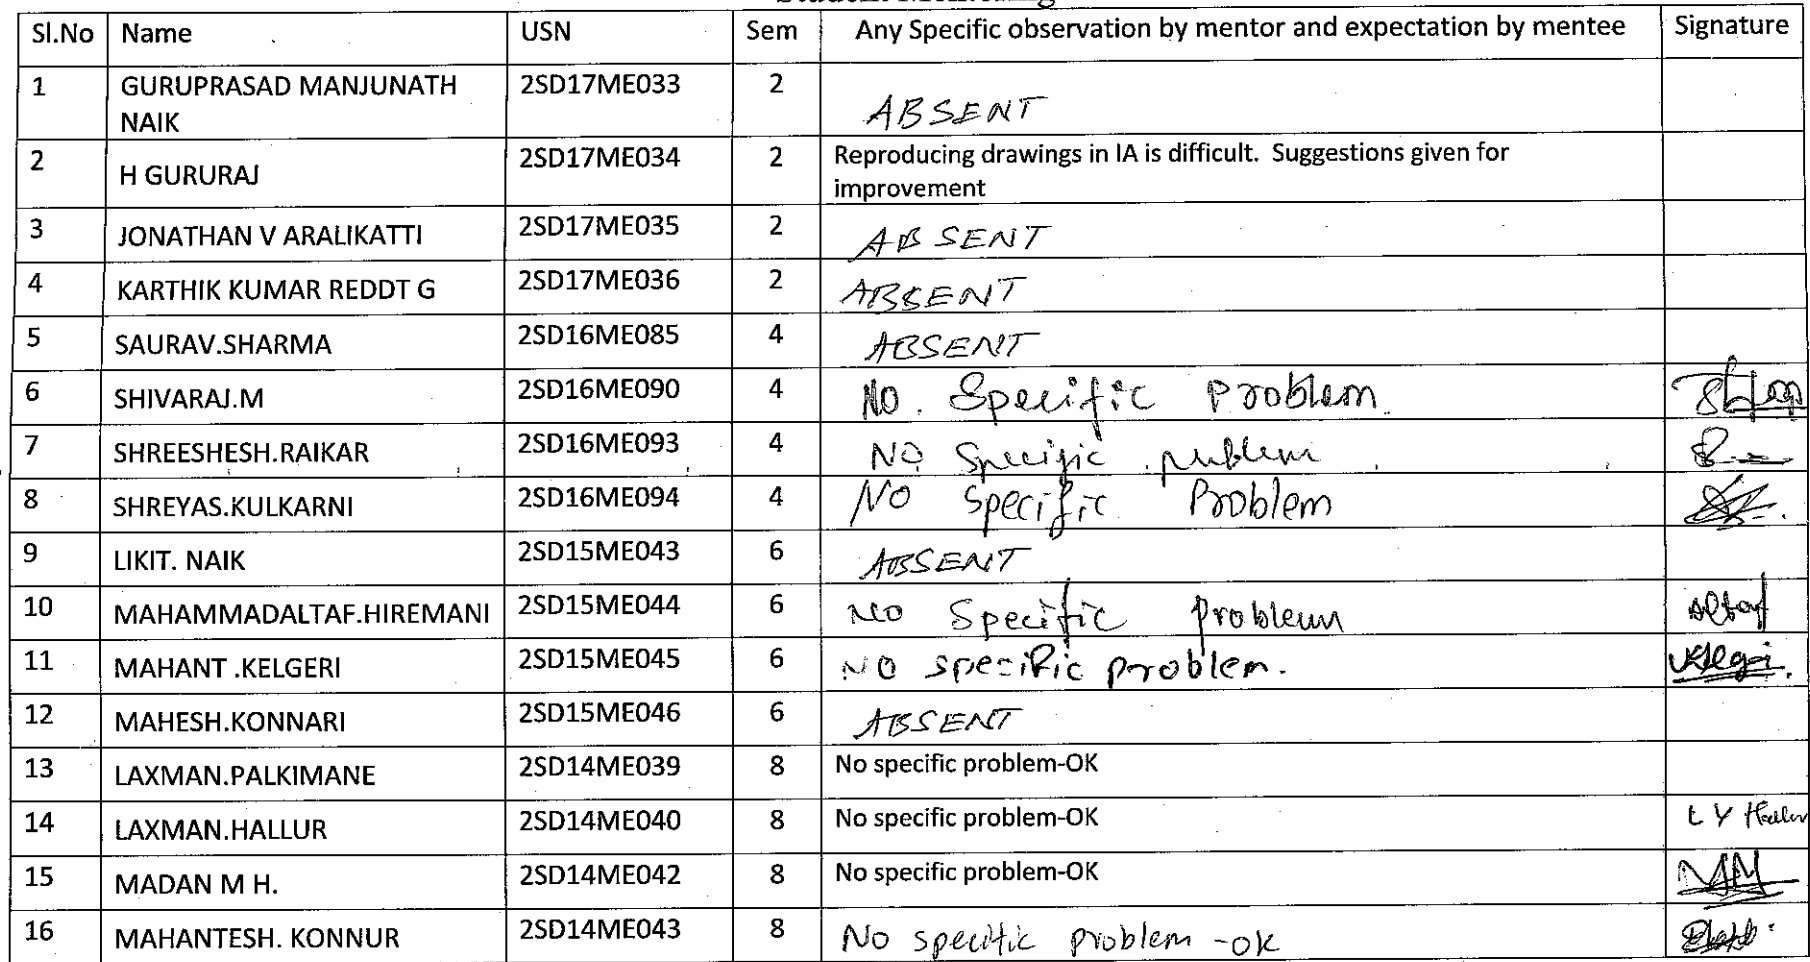 Sl.No Name USN Sem Any Specific observation by mentor and expectation by mentee Signature
1 GURUPRASAD MANJUNATH NAIK 2SD17ME033 2 ABSENT
2 H GURURAJ 2SD17ME034 2 Reproducing drawings in IA is difficult. Suggestions given for improvement
3 JONATHAN V ARALIKATTI 2SD17ME035 2 ABSENT
4 KARTHIK KUMAR REDDT G 2SD17ME036 2 ABSENT
5 SAURAV.SHARMA 2SD16ME085 4 ABSENT
6 SHIVARAJ.M 2SD16ME090 4 NO. Specific problem.
7 SHREESHESH.RAIKAR 2SD16ME093 4 NO Specific problem
8 SHREYAS.KULKARNI 2SD16ME094 4 NO Specific Problem
9 LIKIT. NAIK 2SD15ME043 6 ABSENT
10 MAHAMMADALTAF.HIREMANI 2SD15ME044 6 NO Specific problem Altaf
11 MAHANT .KELGERI 2SD15ME045 6 NO specific problem.
12 MAHESH.KONNARI 2SD15ME046 6 ABSENT
13 LAXMAN.PALKIMANE 2SD14ME039 8 No specific problem-OK
14 LAXMAN.HALLUR 2SD14ME040 8 No specific problem-OK L Y
15 MADAN M H. 2SD14ME042 8 No specific problem-OK
16 MAHANTESH. KONNUR 2SD14ME043 8 No specific problem -ok